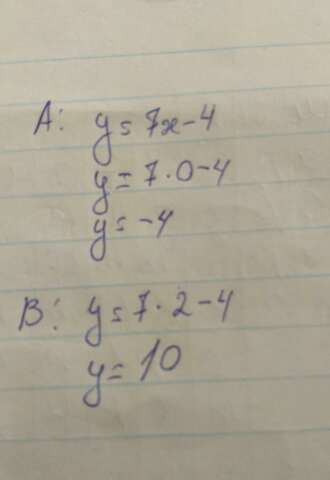 A: y = 7x - 4
y = 7 · 0 - 4
y = -4
B: y = 7 · 2 - 4
y = 10